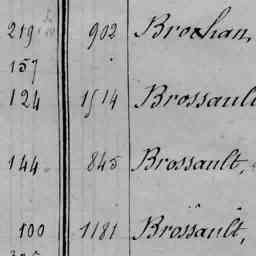 219 902 Brochan,
157
124 1514 Brossault
144 845 Brossault,
100 1181 Brossault,